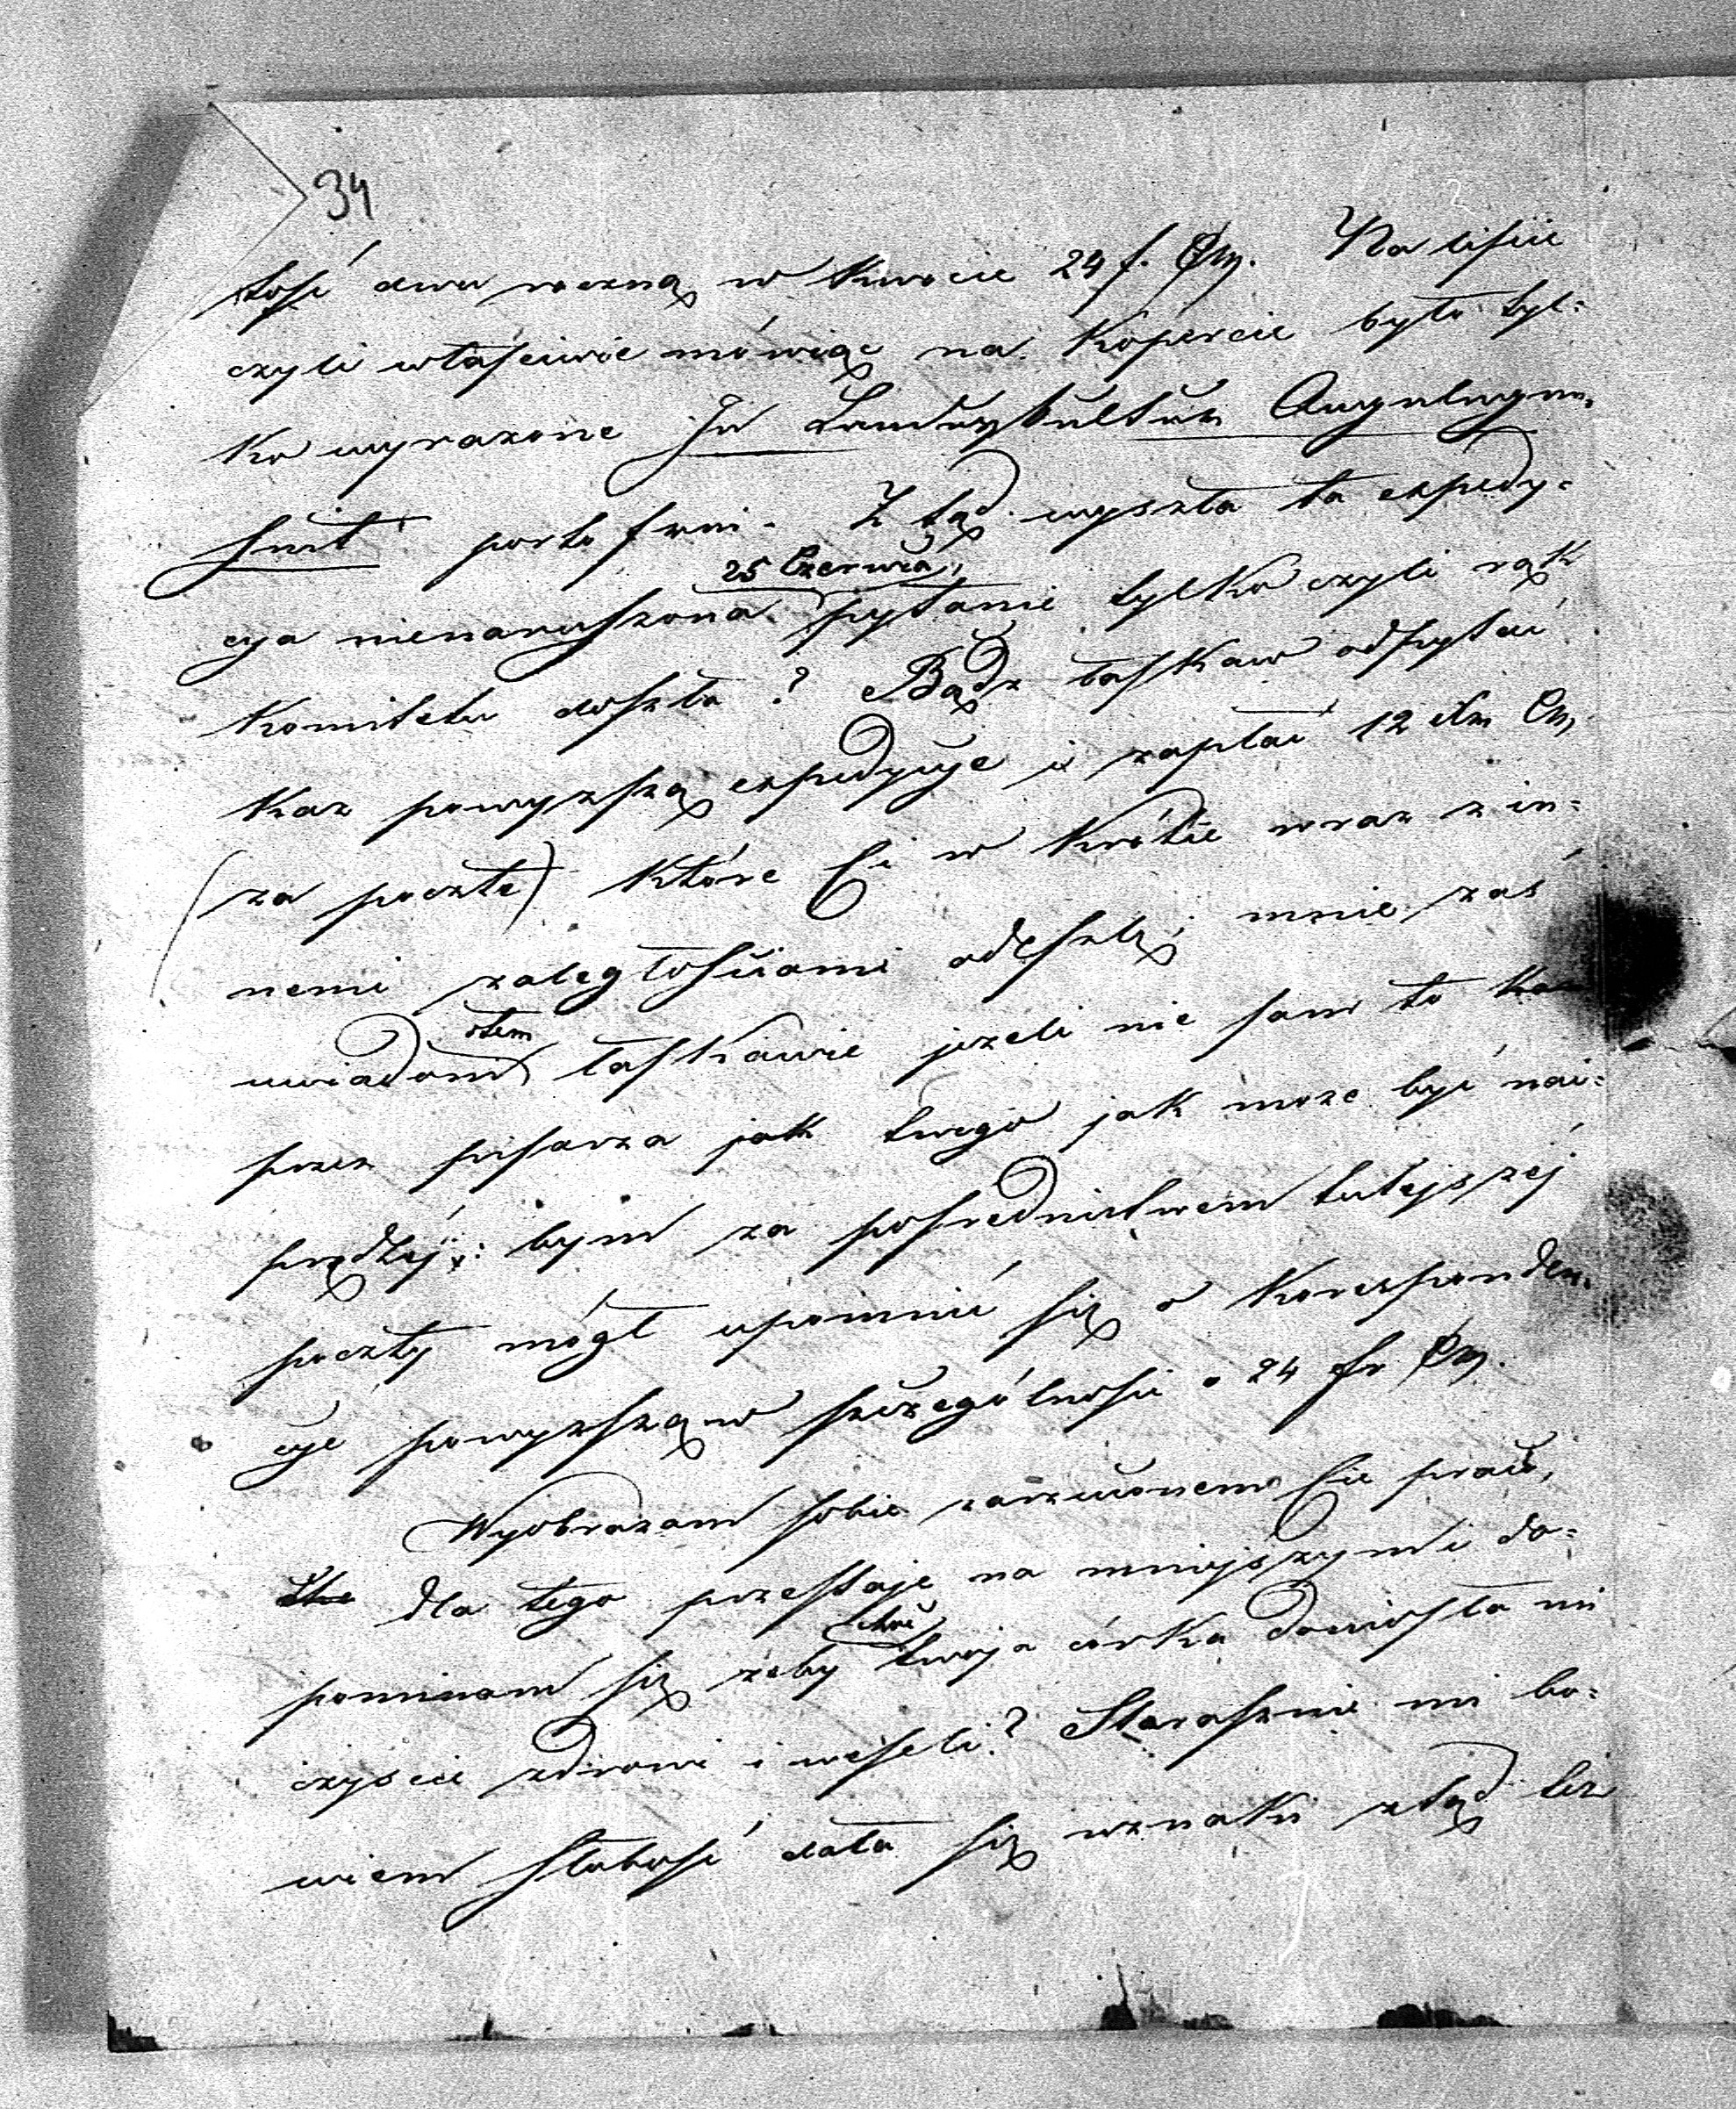 34
tość dwu roczną w kwocie 24 f. Cm. Na liście
czyli właściwie mówiąc na kopercie było tyl=
ko wyrażone In Landeskultur Angelegen,
heit porto frei. Z tąd wyszła ta expedy=
25 Czerwca,
cya nienaruszona pytanie tylko czyli rąk
komitetu doszła? Bądź łaskaw odpytać
kaz powyższą expedycye i zapłać 12 Cm
(za poczte) które Ci w krótce wraz z in=
nemi zaległościami odeszlę; mnie zaś
otem
uwiadom łaskawie jeżeli nie sam to
przez pisarza jak twego jak może być nai=
prędzéj: bym za pośrednictwem tutejszéj
poczty mógł upomnić się o korespenden,
cye powyższą w szczególności o 24 fr Cm.
Wyobrażam sobie zarzuconem Cie pracą,
dla tego przestaje na mniejszym i do=
choć
pominam się żeby twoja córka doniosła mi
czyście zdrowi i weseli? Strasznie mi bo=
wiem słabość dała się wznaki ztąd